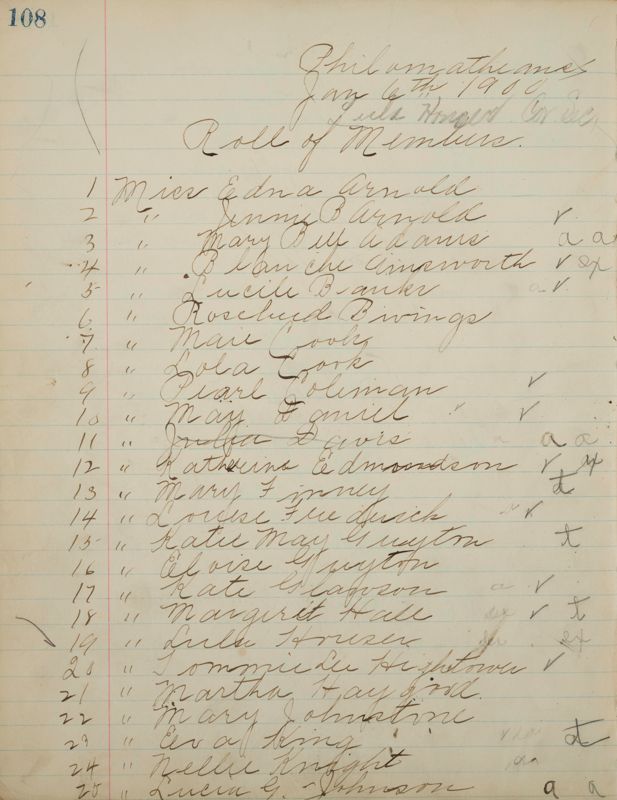 108
Philomatheans
Jan 6th 1900
Lula Houser Cor Sec,
Roll of Members.
1 Miss Edna Arnold
2 " Jennie B Arnold ✓
3 " Mary Bell Adams a a
4 " Blanche Ainsworth ✓ ex
5 " Lucile Banks a ✓
6 " Rosebud Bivings
7 " Marie Cook
8 " Lola Cook
9 " Pearl Coleman ✓
10 " May Daniel ✓ ✓
11 " Julia Davis a a
12 " Katherine Edmondson ✓ ex
13 " Mary Finney t
14 " Louise Frederick ✓
15 " Katie May Guyton t
16 " Eloise Guyton
17 " Kate Glawson a ✓
18 " Margeret Hall ex ✓ t
19 " Lula Houser ex
20 " Tommie Lee Hightower ✓
21 " Martha Haygood
22 " Mary Johnstone
23 " Eva King t
24 " Nellie Knight
25 " Lucia G. Johnson a a